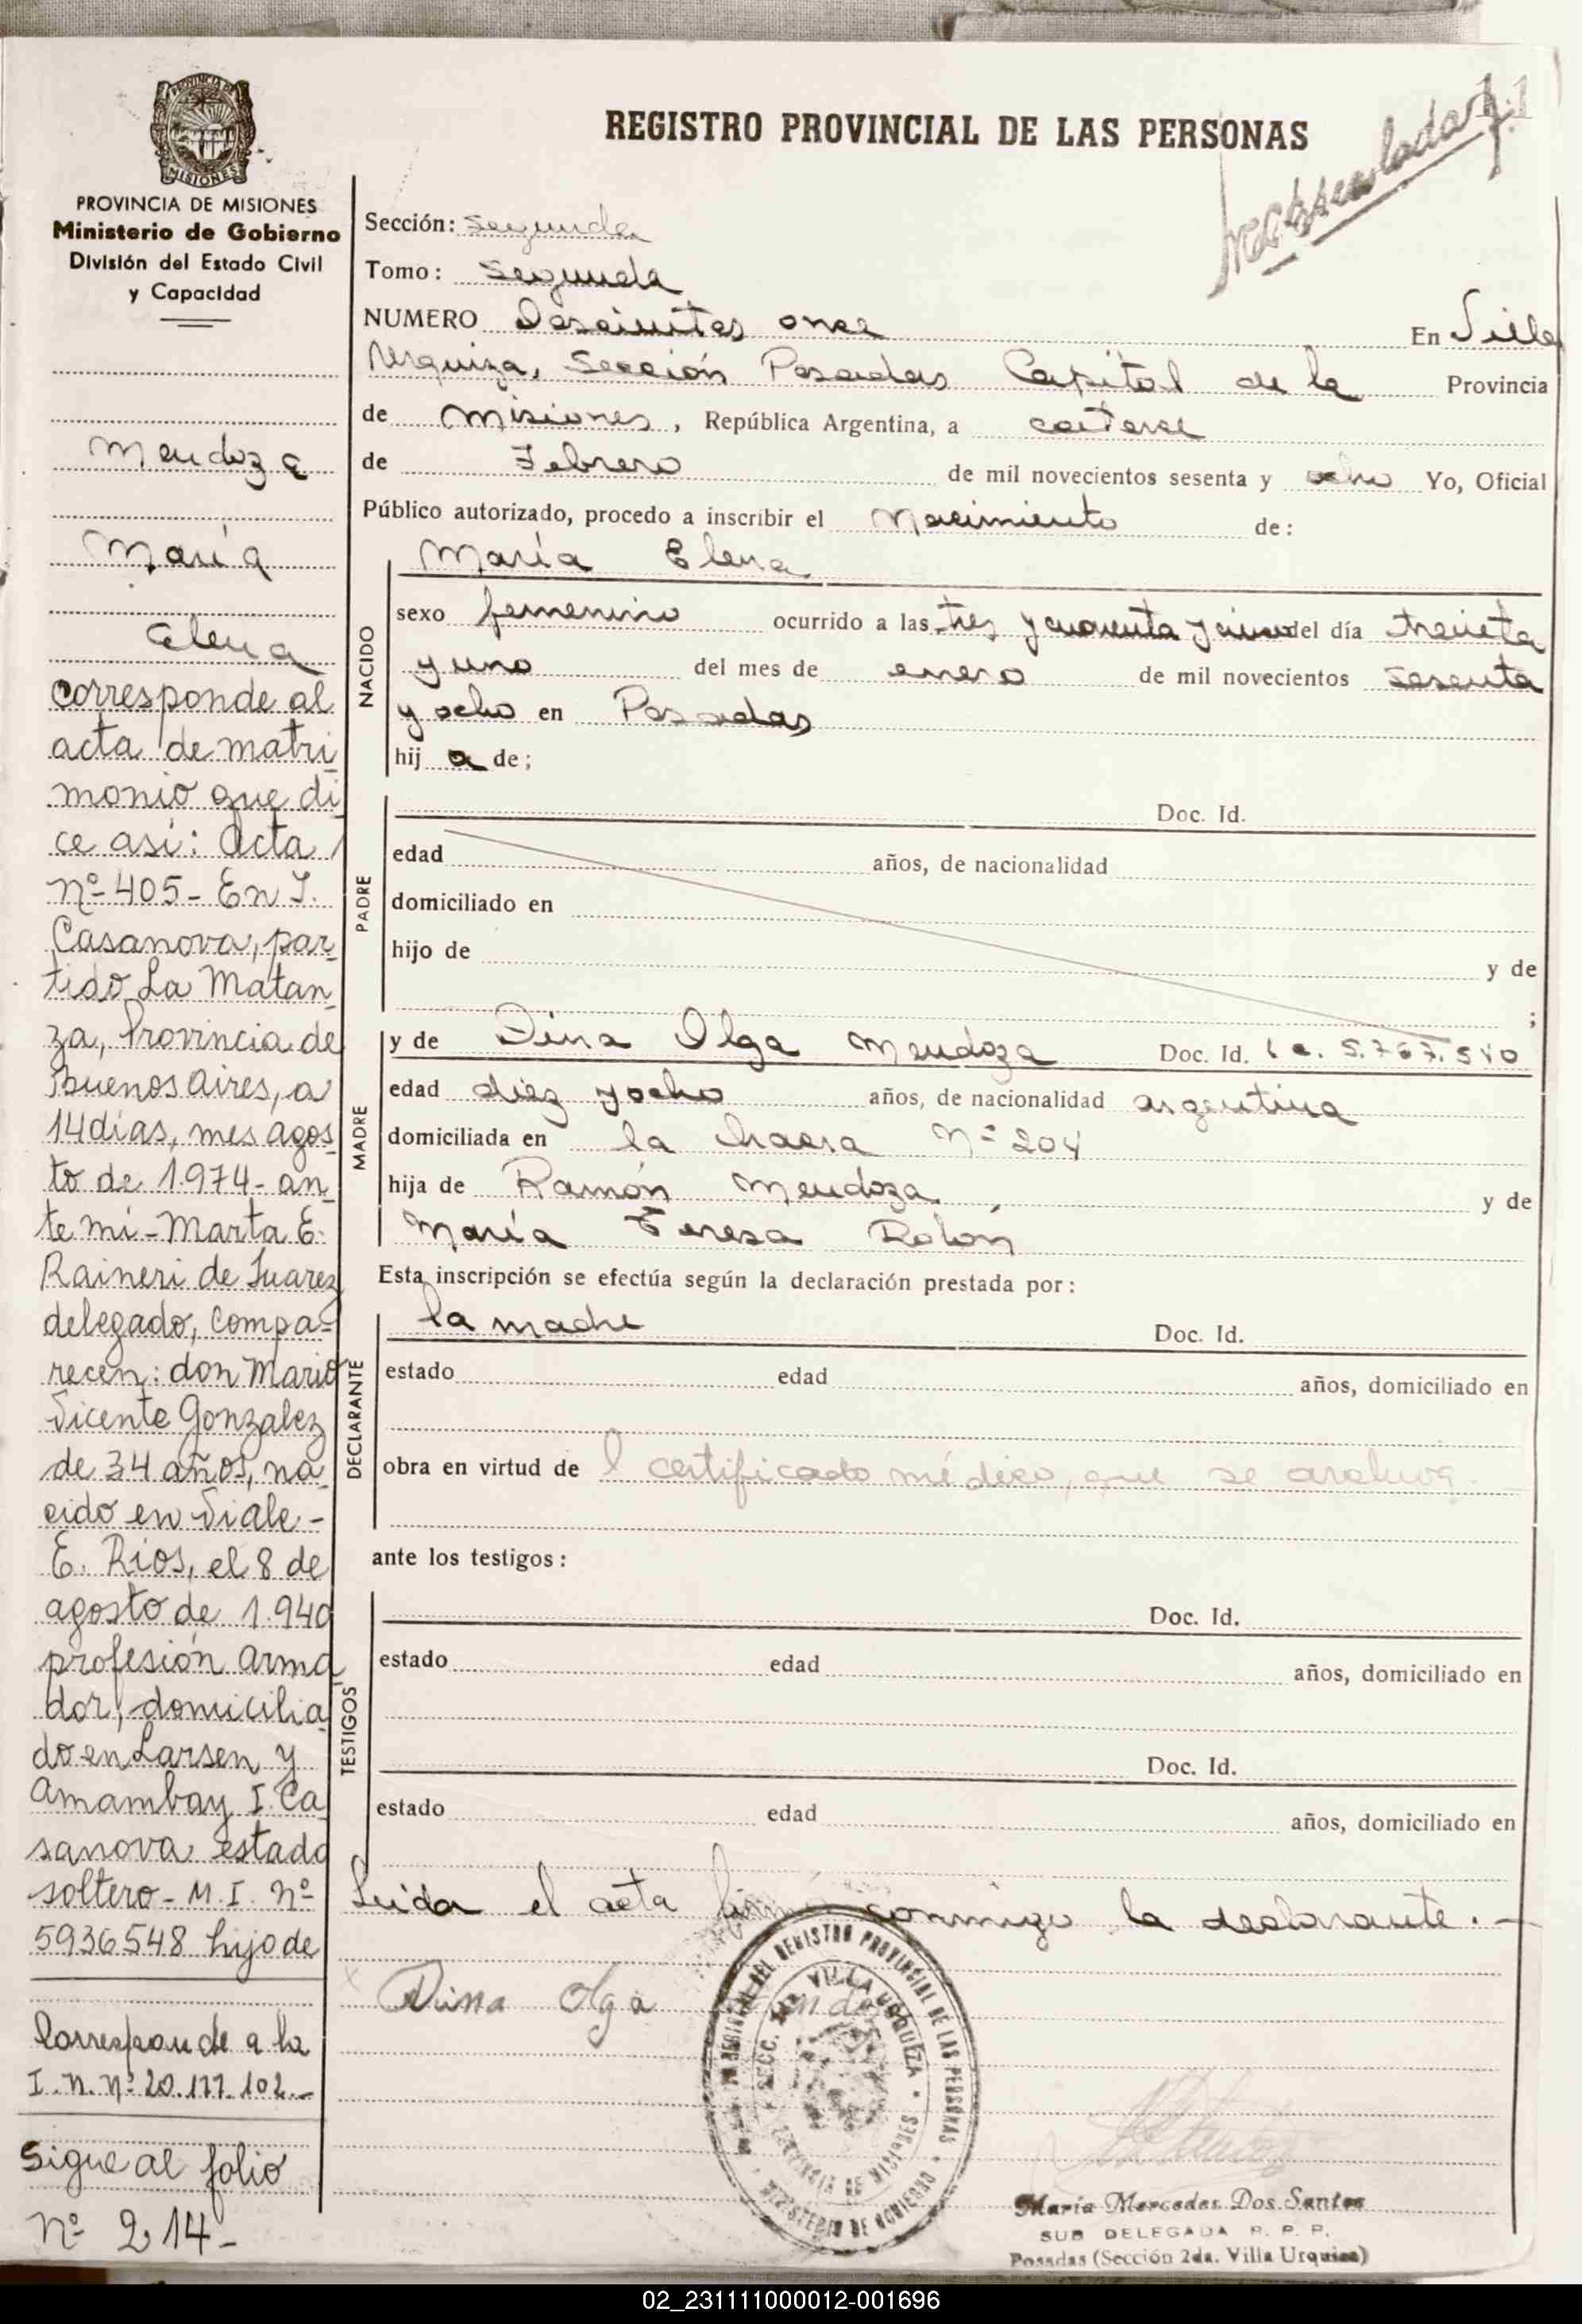 REGISTRO PROVINCIAL DE LAS PERSONAS
PROVINCIA DE MISIONES
Ministerio de Gobierno
División del Estado Civil
y Capacidad
Mendoza
María
Elena
corresponde al
acta de matri
monio que di
ce asi: Acta
nº 405 - En I.
Casanova, par
tido La Matan
za, Provincia de
Buenos Aires, a
14 dias, mes agos
to de 1.974 - an
te mi - Marta E.
Raineri de Juarez
delegado, compa=
recen: don Mario
Vicente Gonzalez
de 34 años, na
cido en Viale -
E. Rios, el 8 de
agosto de 1.940
profesión arma
dor, domicilia
do en Larsen y
Amambay I. Ca
sanova estado
soltero - M. I. nº
5936548 hijo de
Corresponde a la
I. N. Nº 20.177.102.-
Sigue al folio
nº 214 -
Sección: Segunda
Tomo: Segunda
NUMERO Doscientos once En Villa
Urquiza, Sección Posadas Capital de la Provincia
de Misiones, República Argentina, a catorce
de Febrero de mil novecientos sesenta y ocho Yo, Oficial
Público autorizado, procedo a inscribir el Nacimiento de:
NACIDO
María Elena
sexo femenino ocurrido a las tres y cuarenta y cinco del día treinta
y uno del mes de enero de mil novecientos sesenta
y ocho en Posadas
hij a de;
PADRE
Doc. Id.
edad años, de nacionalidad
domiciliado en
hijo de y de
;
MADRE
y de Dina Olga Mendoza Doc. Id. 5.767.510
edad diez y ocho años, de nacionalidad argentina
domiciliada en la chacra Nº 204
hija de Ramón Mendoza y de
María Teresa Rolón
Esta inscripción se efectúa según la declaración prestada por:
DECLARANTE
la madre Doc. Id.
estado edad años, domiciliado en
obra en virtud de l certificado médico, que se archiva.
ante los testigos:
TESTIGOS
Doc. Id.
estado edad años, domiciliado en
Doc. Id.
estado edad años, domiciliado en
Leida el acta firma conmigo la declarante. -
Dina Olga
DEL REGISTRO PROVINCIAL DE LAS PERSONAS
VILLA URQUIZA
PROVINCIA DE MISIONES
MINISTERIO DE GOBIERNO
María Mercedes Dos Santos
SUB DELEGADA R. P. P.
Posadas (Sección 2da. Villa Urquiza)
02_231111000012-001696